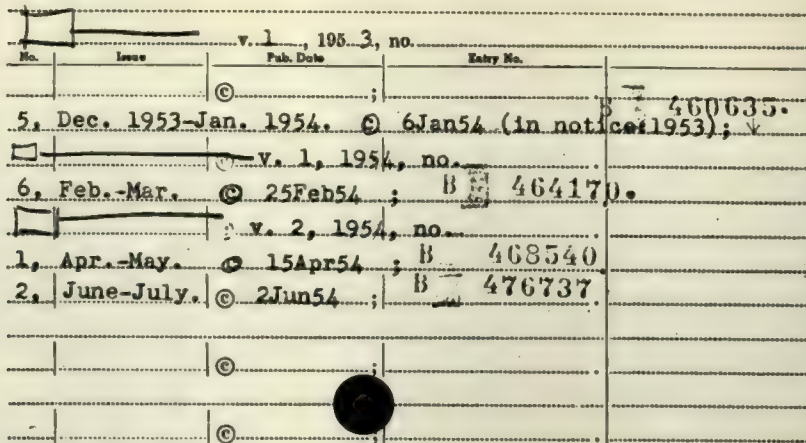 v. 1, 1953, no.
No. Issue Pub. Date Entry No.
© ;
B 460635.
5, Dec. 1953-Jan. 1954. © 6Jan54 (in notice:1953); ↓
v. 1, 1954, no.
6, Feb.-Mar. © 25Feb54 ; B 464170.
v. 2, 1954, no.
1, Apr.-May. © 15Apr54 ; B 468540
2, June-July. © 2Jun54 ; B 476737 .
© ; .
© ; .